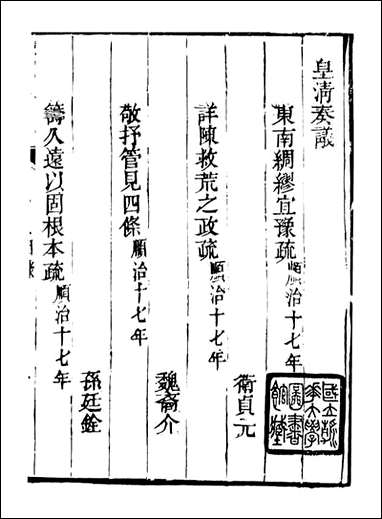 皇清奏議
東南綢繆宜豫疏 順治十七年
衛貞元
詳陳救荒之政疏 順治十七年
魏裔介
敬抒管見四條 順治十七年
孫廷銓
籌久遠以固根本疏 順治十七年
國立清
華大學
圖書
館藏